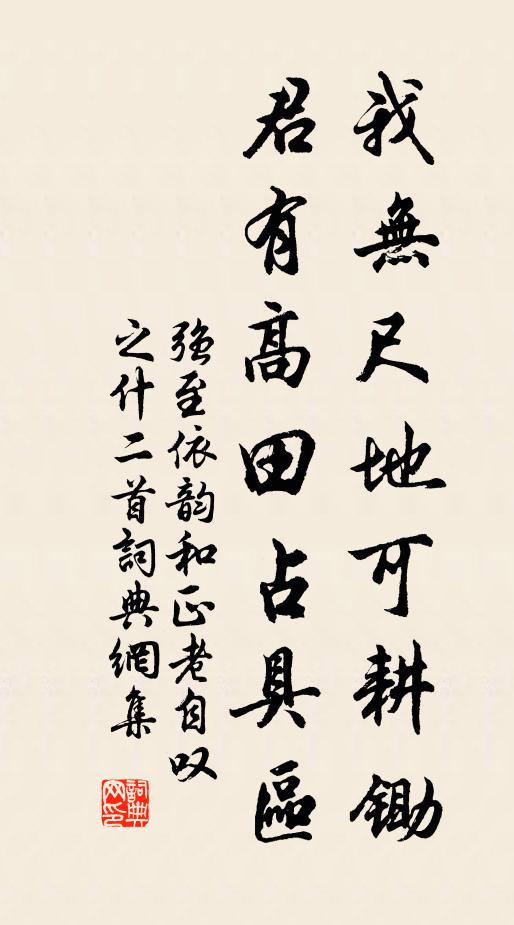 我無尺地可耕鋤
君有高田占具區
強至依韵和正老自叹
之什二首詞典網集
詞典网印